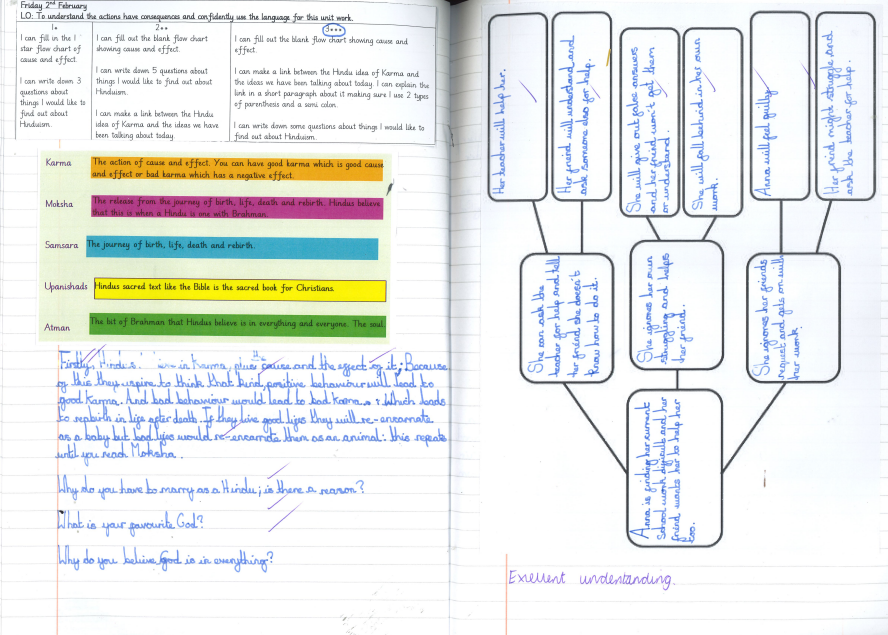 Friday 2nd February
LO: To understand the actions have consequences and confidently use the language for this unit work.
1*
I can fill in the 1
star flow chart of
cause and effect.
I can write down 3
questions about
things I would like to
find out about
Hinduism.
2**
I can fill out the blank flow chart
showing cause and effect.
I can write down 5 questions about
things I would like to find out about
Hinduism.
I can make a link between the Hindu
idea of Karma and the ideas we have
been talking about today.
3***
I can fill out the blank flow chart showing cause and
effect.
I can make a link between the Hindu idea of Karma and
the ideas we have been talking about today. I can explain the
link in a short paragraph about it making sure I use 2 types
of parenthesis and a semi colon.
I can write down some questions about things I would like to
find out about Hinduism.
Karma
The action of cause and effect. You can have good karma which is good cause
and effect or bad karma which has a negative effect.
Moksha
The release from the journey of birth, life, death and rebirth. Hindus believe
that this is when a Hindu is one with Brahman.
Samsara
The journey of birth, life, death and rebirth.
Upanishads
Hindus sacred text like the Bible is the sacred book for Christians.
Atman
The bit of Brahman that Hindus believe is in everything and everyone. The soul.
Firstly, Hindus in Karma, plus the cause and the effect of it; Because
of this they aspire to think that kind, positive behaviour will lead to
good Karma. And bad behaviour would lead to bad Karma. Which leads
to rebirth in life after death. If they live good lifes they will re-encarnate
as a baby but bad lifes would re-encarnate them as an animal: this repeats
until you reach Moksha.
Why do you have to marry as a Hindu; is there a reason?
What is your favourite God?
Why do you believe God is in everything?
Her teacher will help her.
Her friend will understand and
ask someone else for help.
She will give out false answers
and her friend won't get them
or understand.
She will fall behind in her own
work.
Anna will feel guilty
Her friend might struggle and
ask the teacher for help.
She can ask the
teacher for help and tell
her friend she doesn't
know how to do it.
She ignores her own
struggling and helps
her friend.
She ignores her friends
request and gets on with
her work.
Anna is finding her current
school work difficult and her
friend wants her to help her
too.
Exellent understanding.